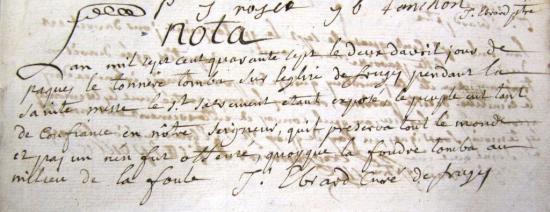 J. Ebrard ptre
nota
L'an mil sept cent quarante sept le deux d'avril jour de
paques le tonnerre tomba sur l'eglise de frugey pendant la
sainte messe le St sacrement etant exposé le peuple eut tant
de confiance en nôtre seigneur, qu'il preserva tout le monde
et pas un n'en fut atterré, quoique la foudre tomba au
milieu de la foule J. Ebrard Curé de frugey